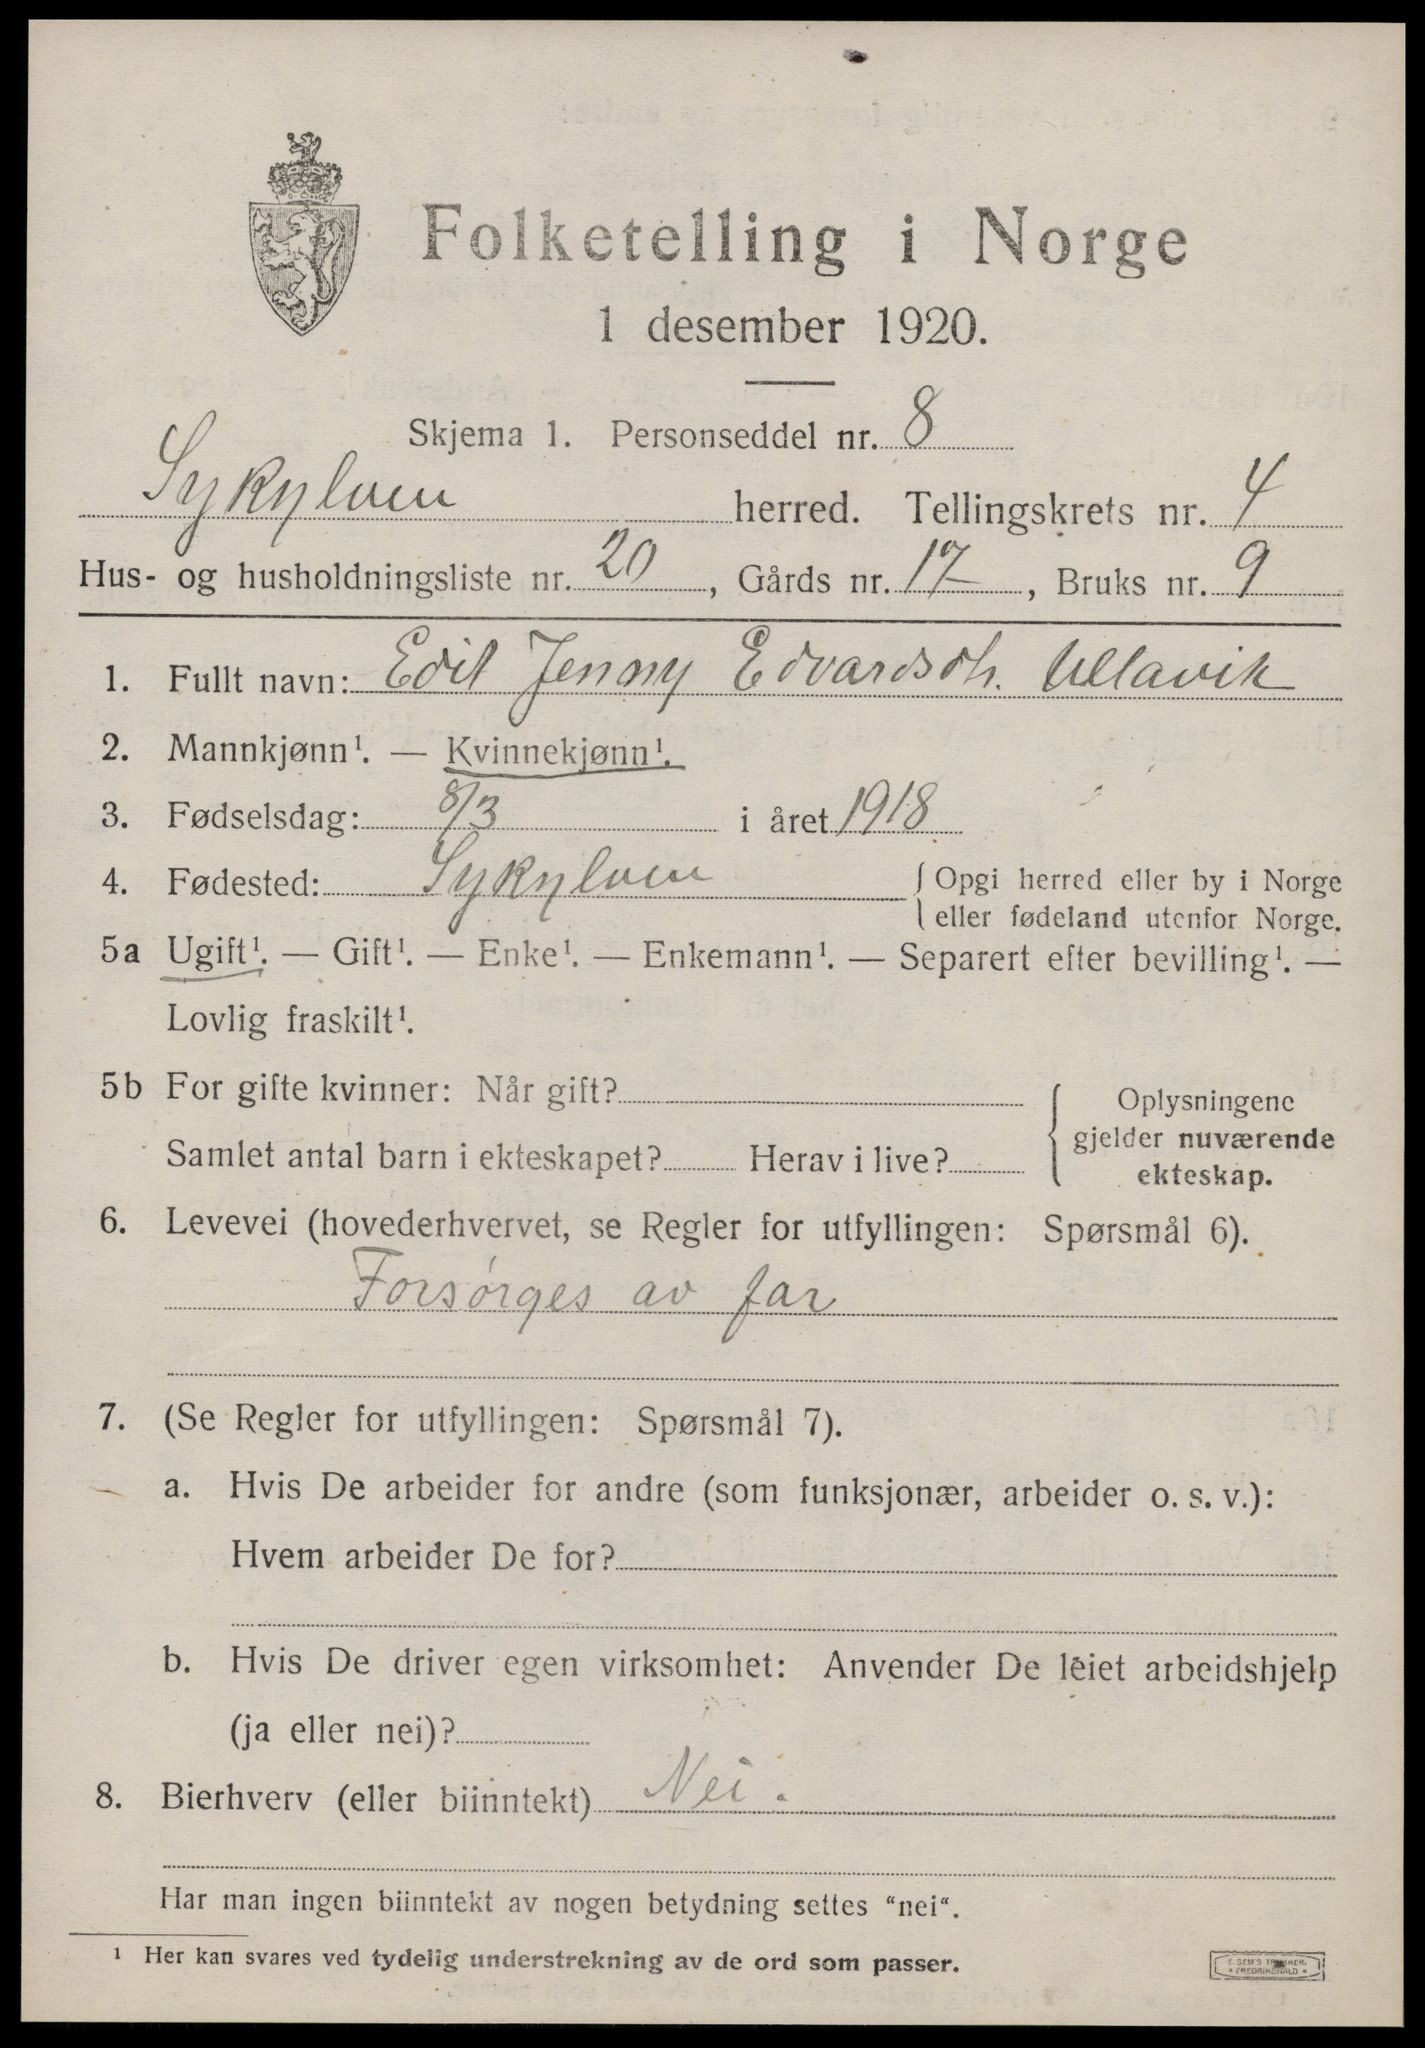 Folketelling i Norge
1 desember 1920.
Skjema 1. Personseddel nr. 8
Sykylven herred. Tellingskrets nr. 4
Hus- og husholdningsliste nr. 20, Gårds nr. 17, Bruks nr. 9
1. Fullt navn: Edit Jenny Edvardsdtr. Ullavik
2. Mannkjønn¹. — Kvinnekjønn¹.
3. Fødselsdag: 8/3 i året 1918
4. Fødested: Sykylven { Opgi herred eller by i Norge
eller fødeland utenfor Norge.
5a Ugift¹. — Gift¹. — Enke¹. — Enkemann¹. — Separert efter bevilling¹. —
Lovlig fraskilt¹.
5b For gifte kvinner: Når gift?
Samlet antal barn i ekteskapet? Herav i live?
Oplysningene
gjelder nuværende
ekteskap.
6. Levevei (hovederhvervet, se Regler for utfyllingen: Spørsmål 6).
Forsørges av far
7. (Se Regler for utfyllingen: Spørsmål 7).
a. Hvis De arbeider for andre (som funksjonær, arbeider o. s. v.):
Hvem arbeider De for?
b. Hvis De driver egen virksomhet: Anvender De leiet arbeidshjelp
(ja eller nei)?
8. Bierhverv (eller biinntekt) Nei.
Har man ingen biinntekt av nogen betydning settes "nei".
¹ Her kan svares ved tydelig understrekning av de ord som passer.
E. SEM'S TRYKKERI.
FREDRIKSHALD